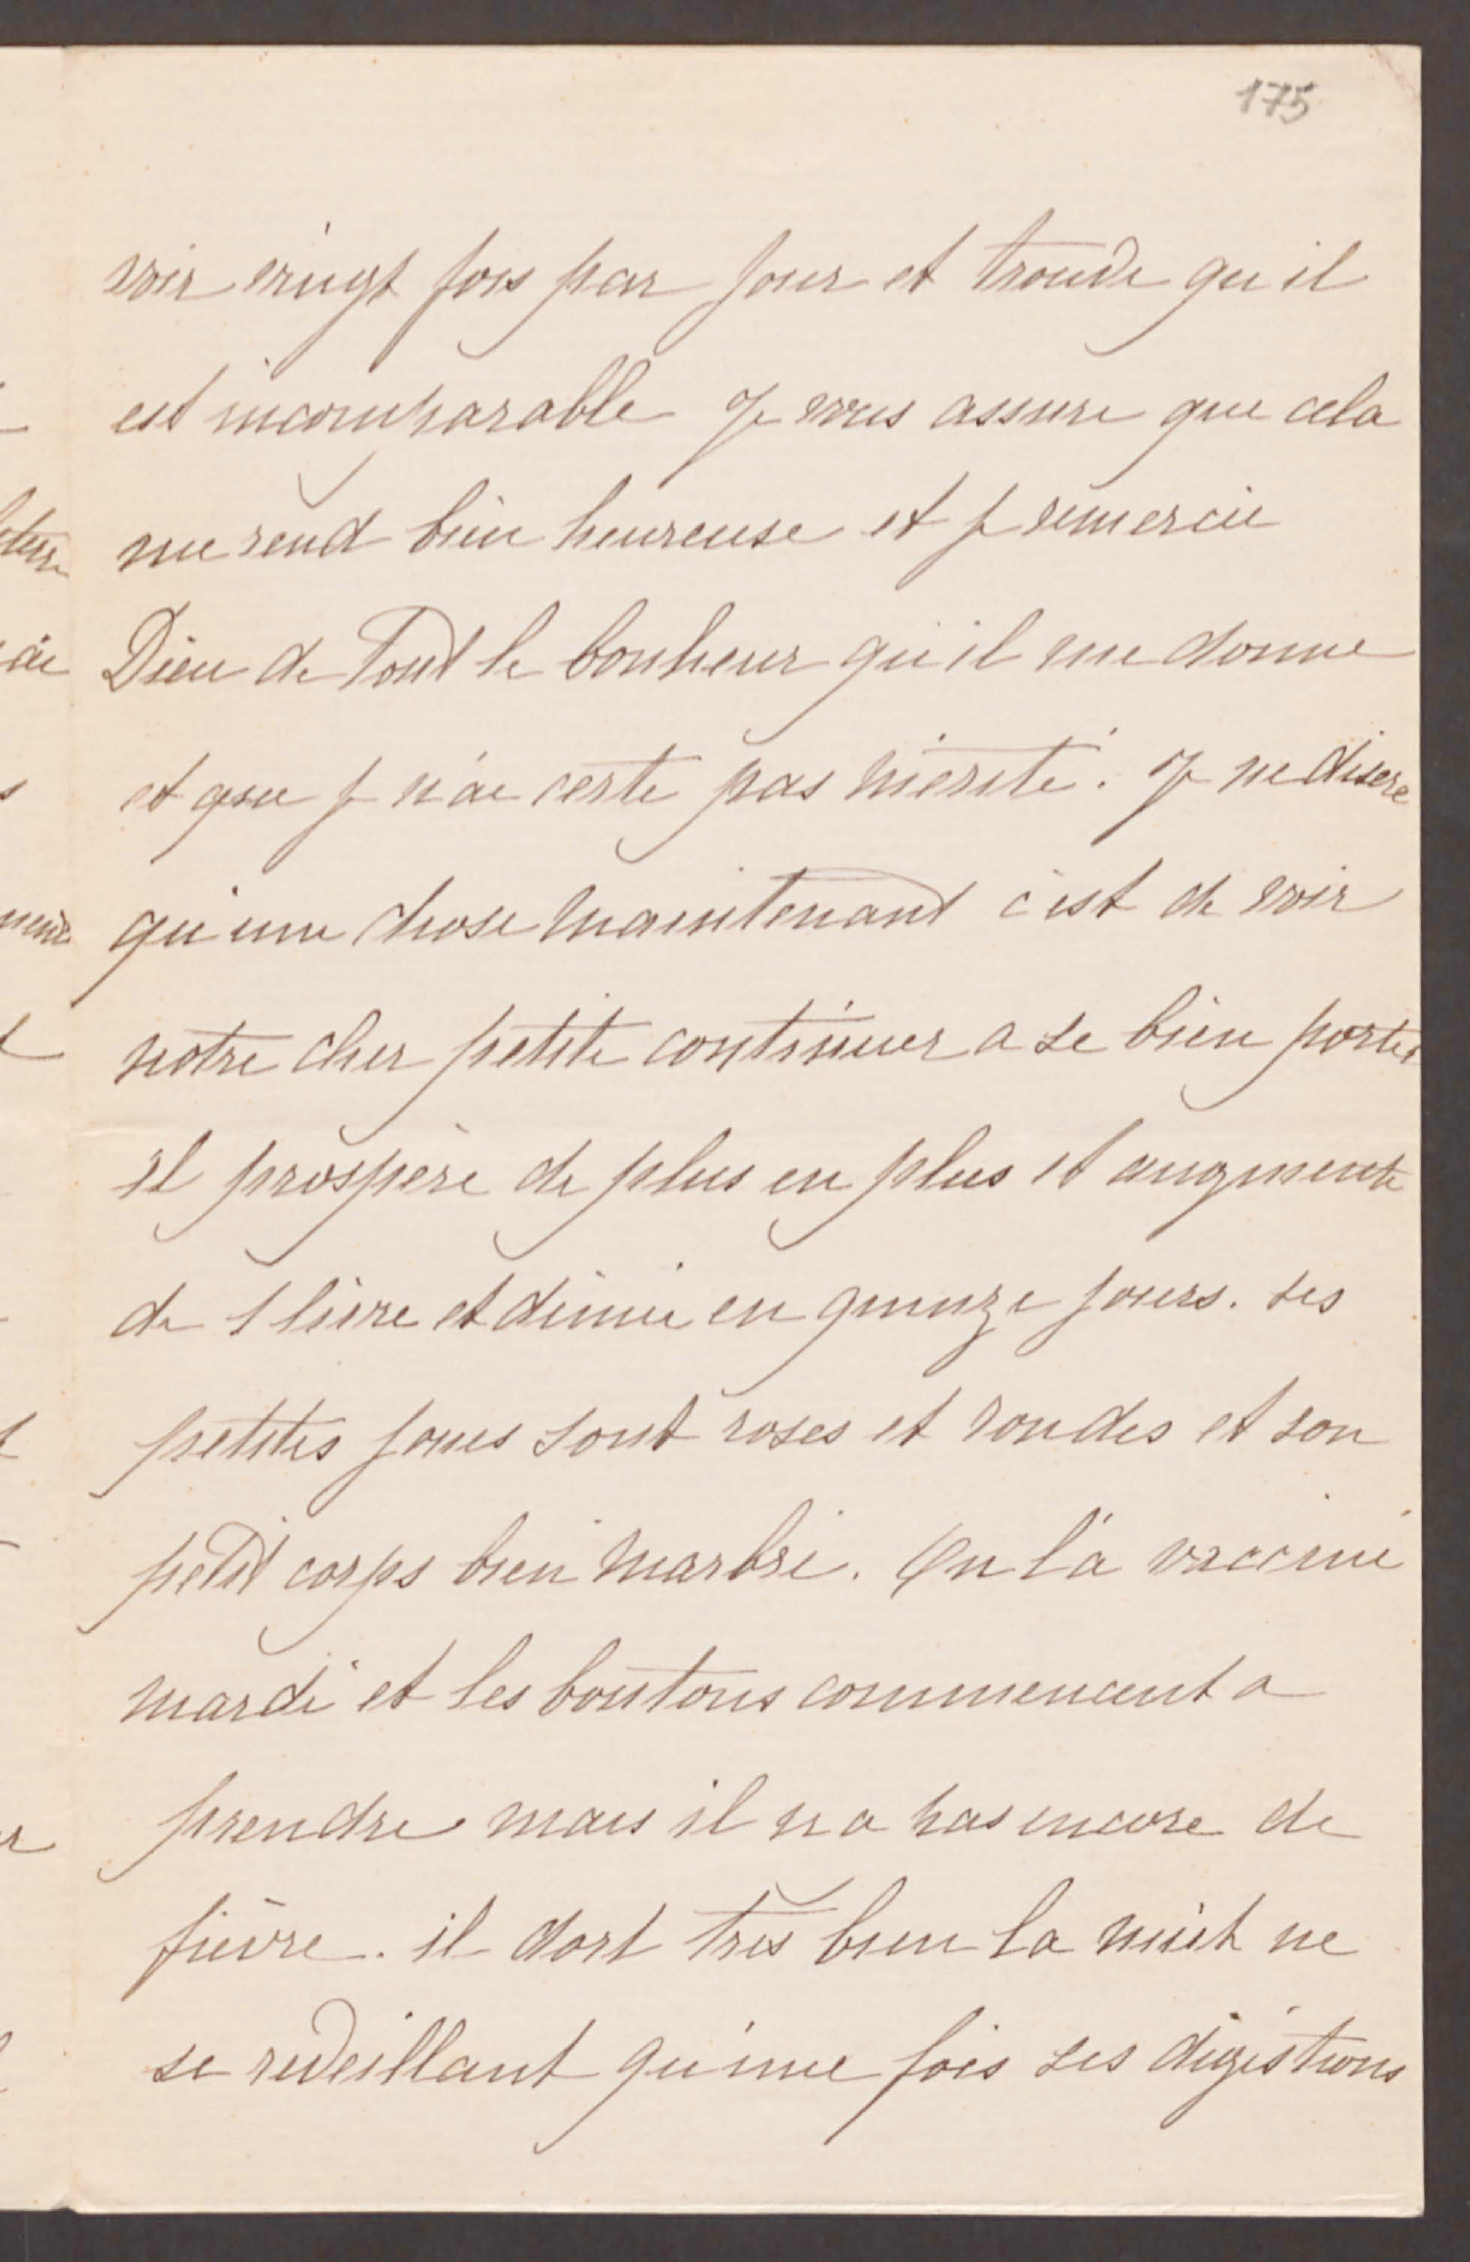 175
voir vingt fois par jour et trouve qu'il
est incomparable je vous assure que cela
me rend bien heureuse et je remercie
Dieu de tout le bonheur qu'il me donne
et que je n'ai certe pas mérité. Je ne disere
qu'une chose maintenant c'est de voir
notre cher petite continuer a se bien porter
il prospère de plus en plus et augmente
de 1 livre et demie en quinze jours. ses
petites joues sont roses et rondes et son
petit corps bien marbré. On l'a vacciné
mardi et les boutons commencent a
prendre mais il n a pas encore de
fièvre. il dort très bien la nuit ne
se reveillant qu'une fois ses digestions